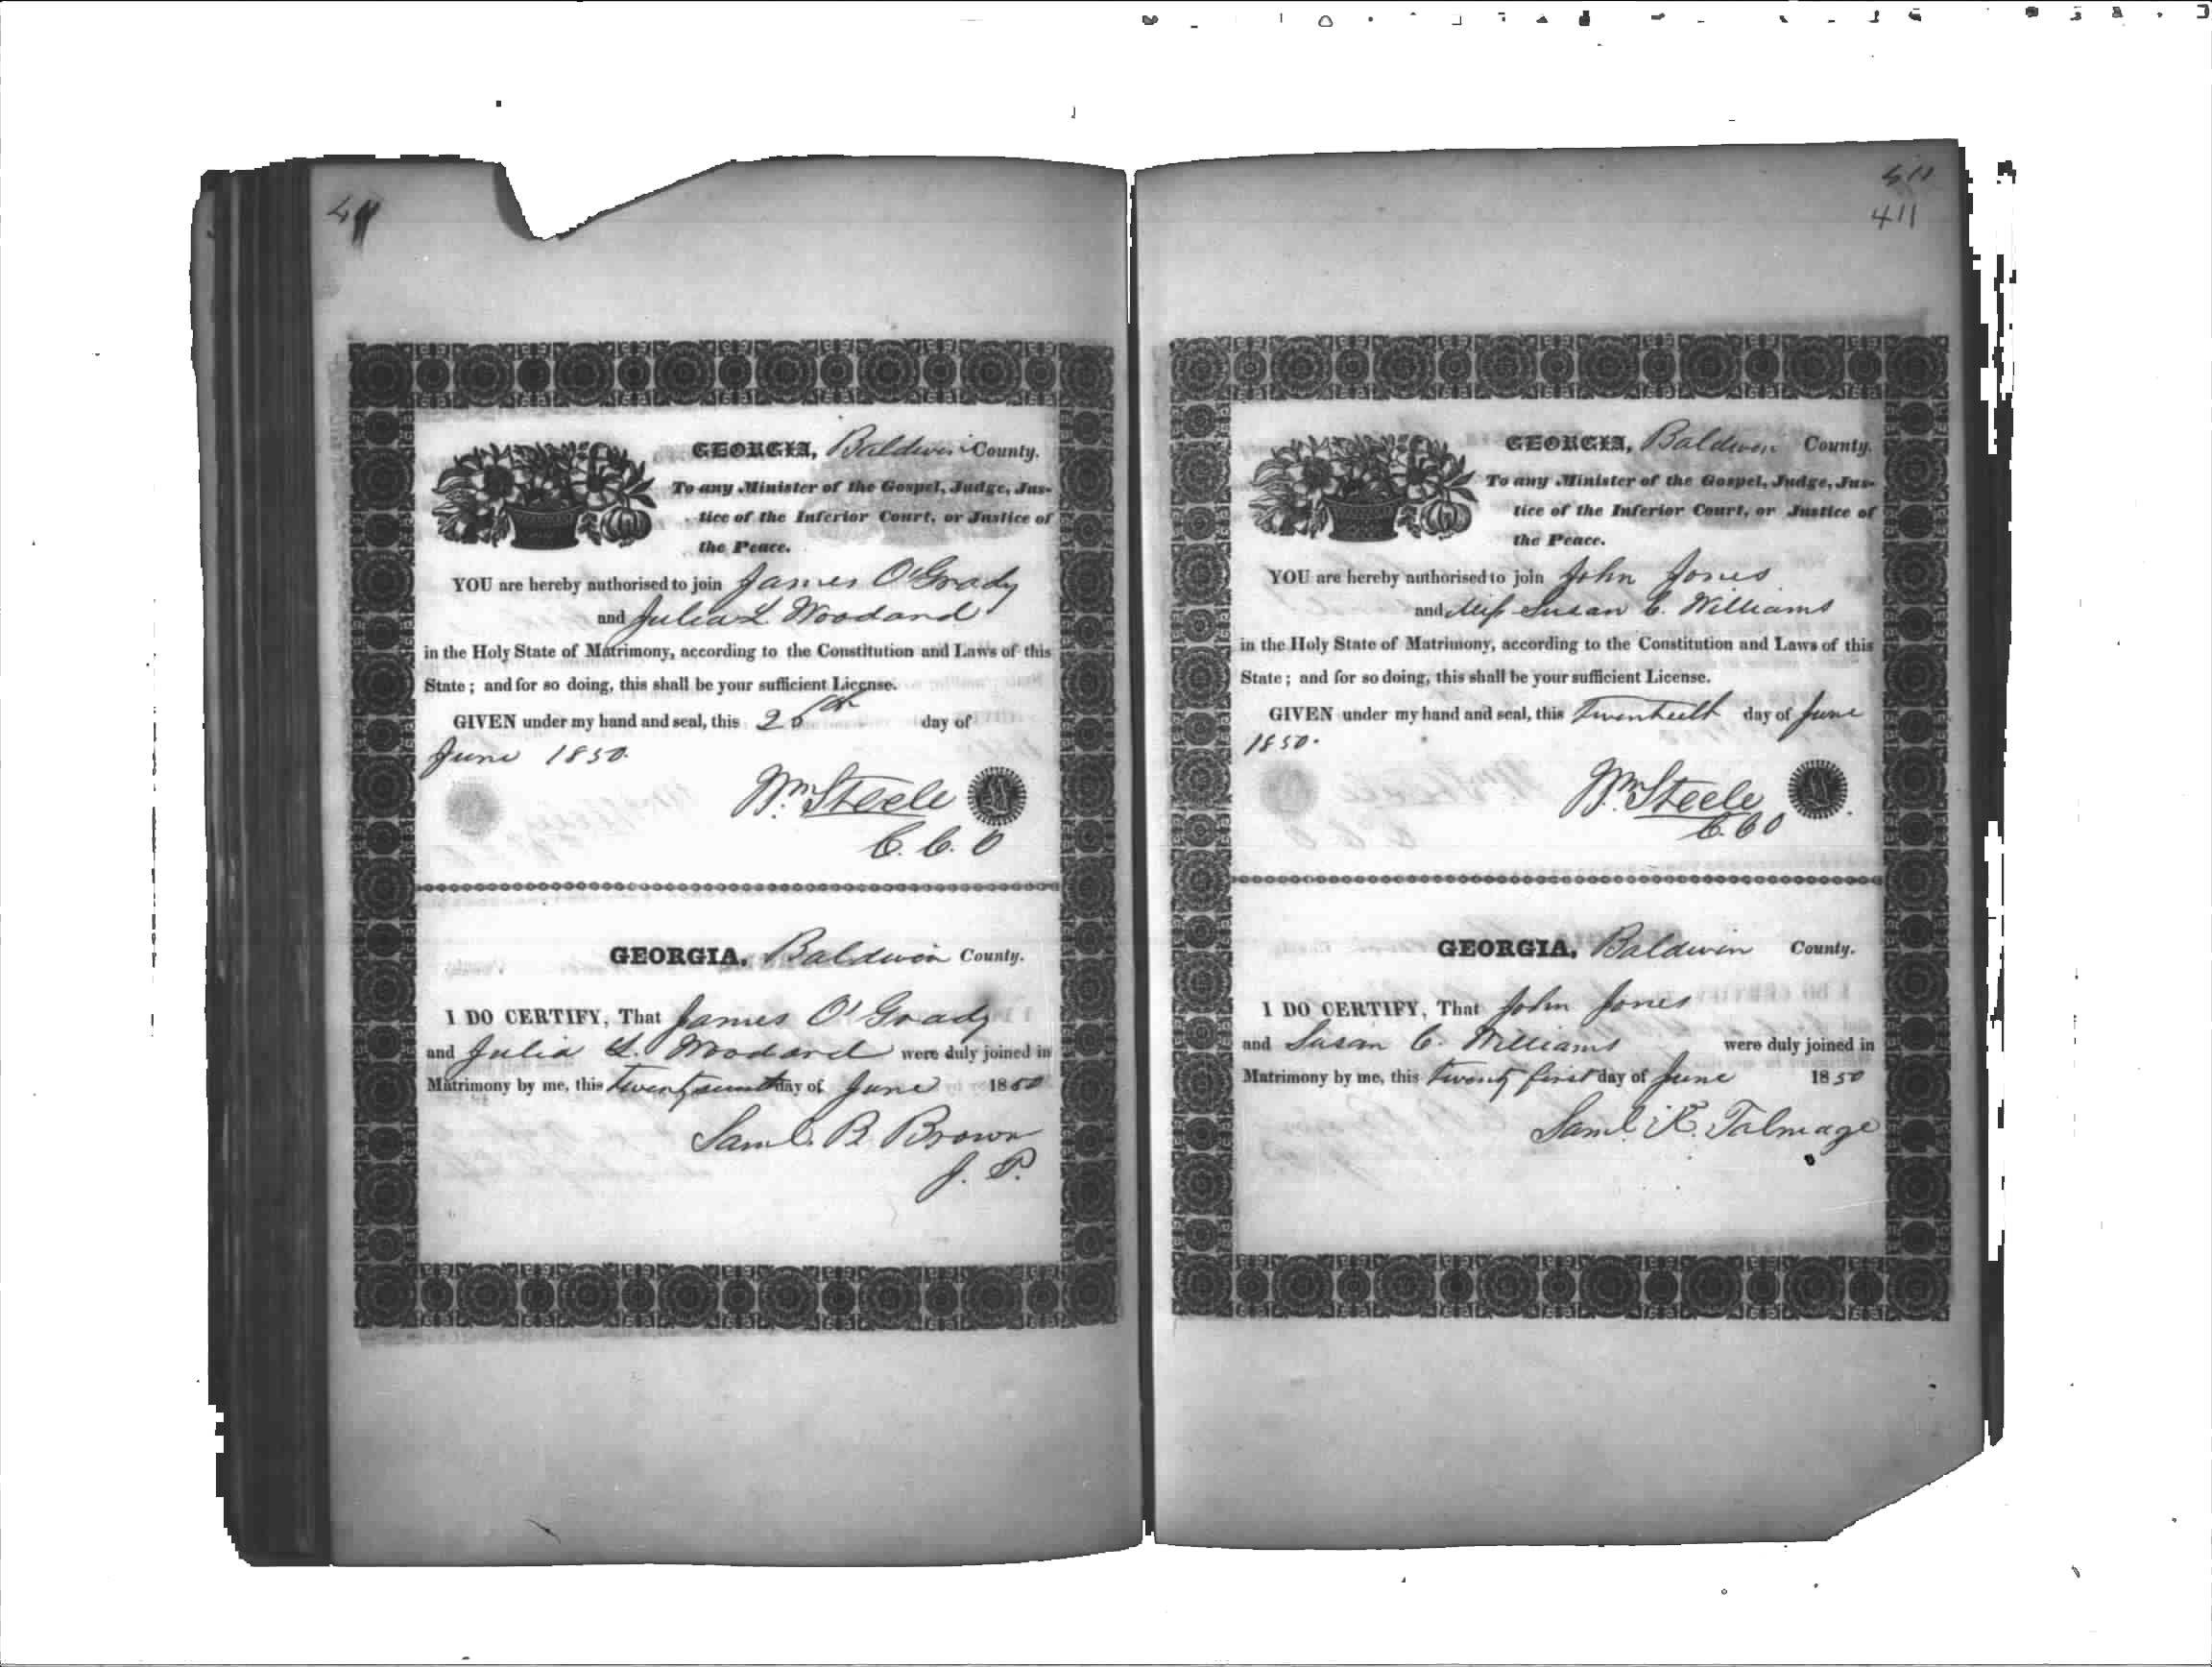 GEORGIA, Baldwin County.
To any Minister of the Gospel, Judge, Jus-
tice of the Inferior Court, or Justice of
the Peace.
YOU are hereby authorised to join James O'Grady
and Julia L. Woodard
in the Holy State of Matrimony, according to the Constitution and Laws of this
State; and for so doing, this shall be your sufficient License.
GIVEN under my hand and seal, this day of
June 1850.
Wm Steele
C. C. O
GEORGIA, Baldwin County.
I DO CERTIFY, That James O'Grady
and Julia L. Woodard were duly joined in
Matrimony by me, this day of June 1850
Saml. B. Brown
J. P.
411
411
GEORGIA, Baldwin County.
To any Minister of the Gospel, Judge, Jus-
tice of the Inferior Court, or Justice of
the Peace.
YOU are hereby authorised to join John Jones
and Miss Susan C. Williams
in the Holy State of Matrimony, according to the Constitution and Laws of this
State; and for so doing, this shall be your sufficient License.
GIVEN under my hand and seal, this Twentieth day of June
1850.
Wm Steele
C. C. O
GEORGIA, Baldwin County.
I DO CERTIFY, That John Jones
and Susan C. Williams were duly joined in
Matrimony by me, this Twenty first day of June 1850
Saml. K. Talmage